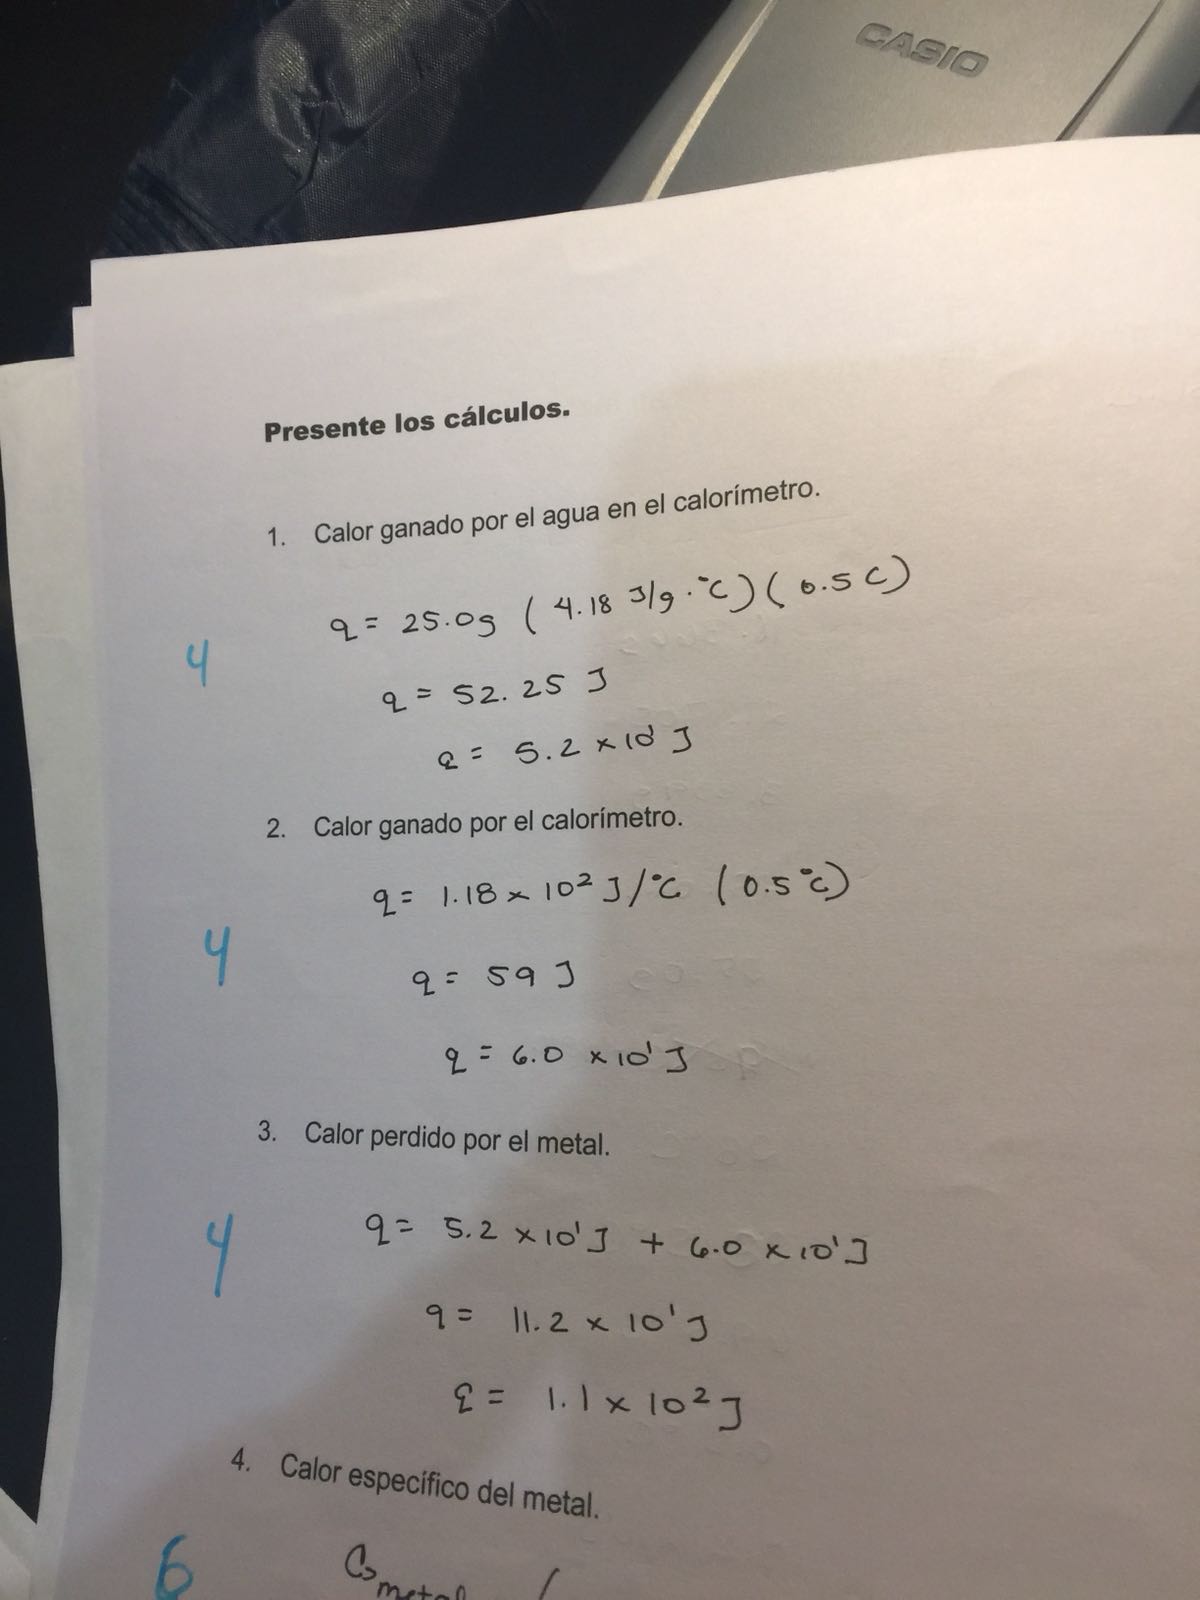 CASIO
Presente los cálculos.
1. Calor ganado por el agua en el calorímetro.
q = 25.0g ( 4.18 J/g·°C)( 0.5 C)
4
q = 52.25 J
q = 5.2 x 10¹ J
2. Calor ganado por el calorímetro.
q = 1.18 x 10² J/°C (0.5°C)
4
q = 59 J
q = 6.0 x 10¹ J
3. Calor perdido por el metal.
q = 5.2 x 10¹ J + 6.0 x 10¹ J
4
q = 11.2 x 10¹ J
q = 1.1 x 10² J
4. Calor específico del metal.
6
Cs metal